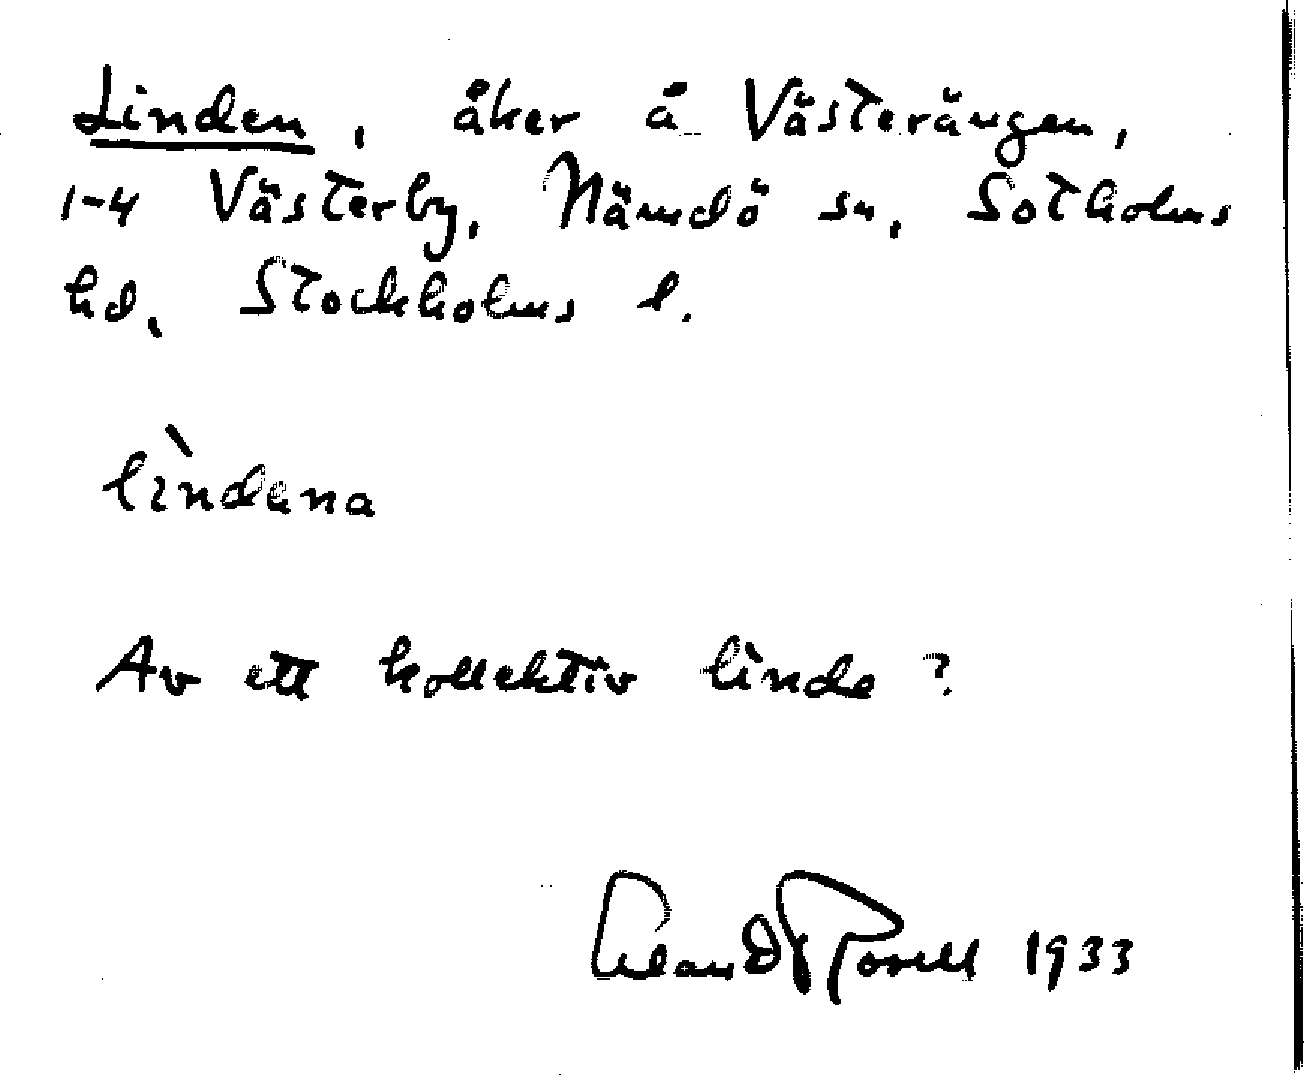 Linden, åker å Västerängen,
1-4 Västerby, Nämdö sn, Sotholms
hd, Stockholms l.
lìndana
Av ett kollektiv linde?
Erland Rosell 1933